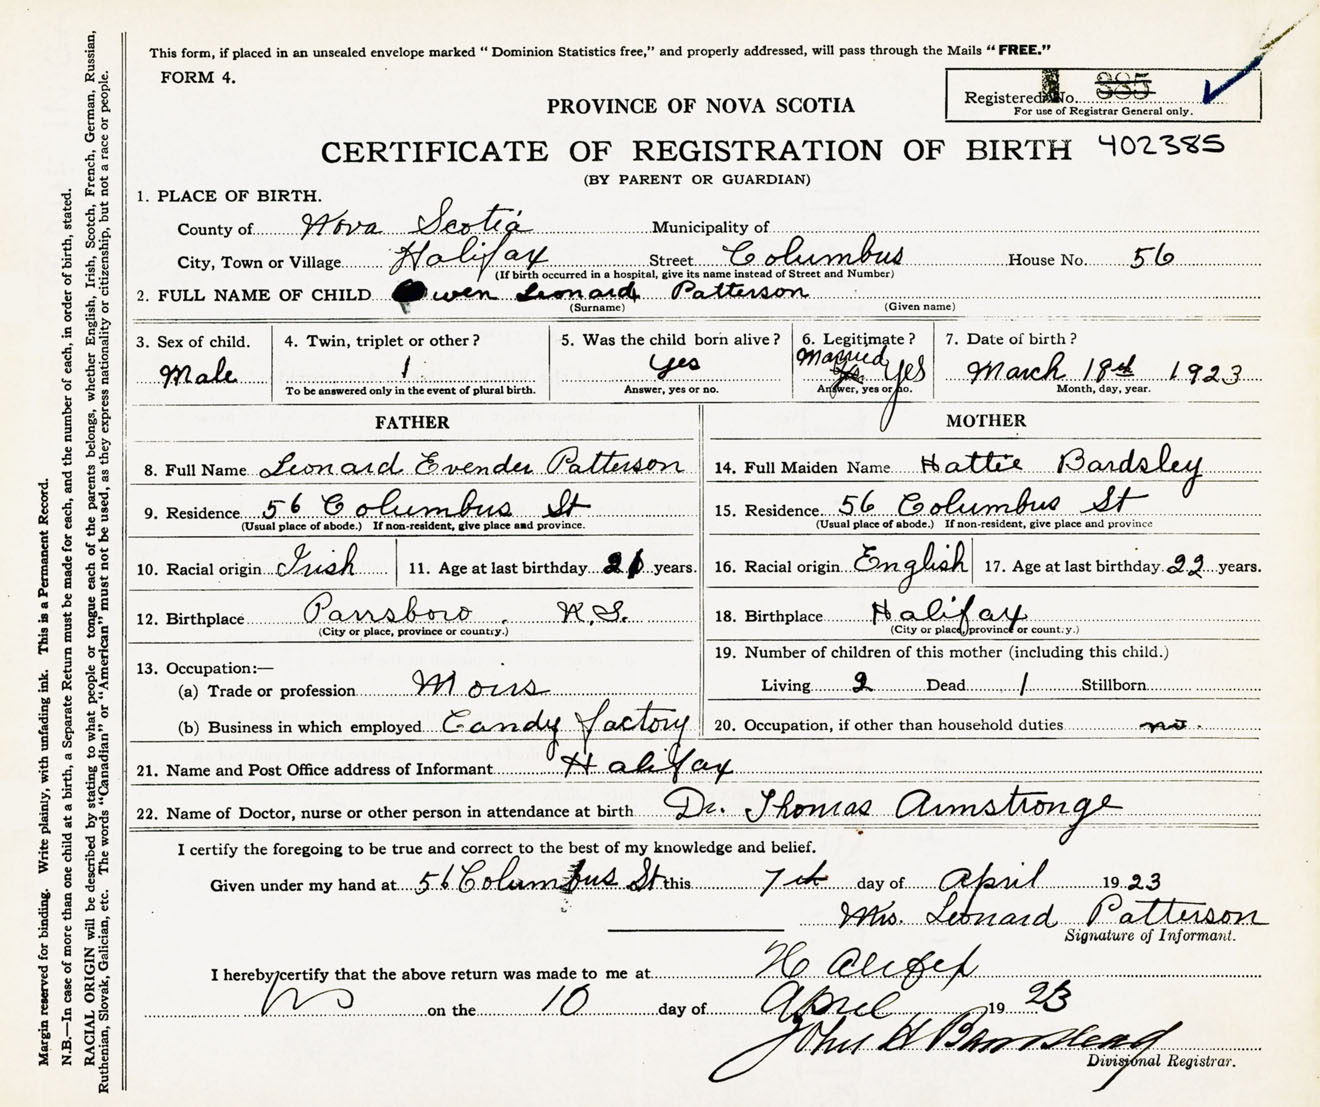 This form, if placed in an unsealed envelope marked “ Dominion Statistics free,” and properly addressed, will pass through the Mails “ FREE.”
FORM 4.
Registered No. 385
For use of Registrar General only.
PROVINCE OF NOVA SCOTIA
CERTIFICATE OF REGISTRATION OF BIRTH 402385
(BY PARENT OR GUARDIAN)
1. PLACE OF BIRTH.
County of Nova Scotia Municipality of
City, Town or Village Halifax Street Columbus House No. 56
(If birth occurred in a hospital, give its name instead of Street and Number)
2. FULL NAME OF CHILD Owen Leonard Patterson
(Surname) (Given name)
3. Sex of child. Male
4. Twin, triplet or other? 1
To be answered only in the event of plural birth.
5. Was the child born alive? yes
Answer, yes or no.
6. Legitimate? Married yes
Answer, yes or no.
7. Date of birth? March 18th 1923
Month, day, year.
FATHER
8. Full Name Leonard Evender Patterson
9. Residence 56 Columbus St
(Usual place of abode.) If non-resident, give place and province.
10. Racial origin Irish 11. Age at last birthday 21 years.
12. Birthplace Parrsboro . N.S.
(City or place, province or country.)
13. Occupation:—
(a) Trade or profession Moirs
(b) Business in which employed Candy factory
MOTHER
14. Full Maiden Name Hattie Bardsley
15. Residence 56 Columbus St
(Usual place of abode.) If non-resident, give place and province
16. Racial origin English 17. Age at last birthday 22 years.
18. Birthplace Halifax
(City or place, province or country.)
19. Number of children of this mother (including this child.)
Living 2 Dead 1 Stillborn
20. Occupation, if other than household duties no.
21. Name and Post Office address of Informant Halifax
22. Name of Doctor, nurse or other person in attendance at birth Dr. Thomas Armstronge
I certify the foregoing to be true and correct to the best of my knowledge and belief.
Given under my hand at 56 Columbus St this 7th day of April 1923
Mrs. Leonard Patterson
Signature of Informant.
I hereby certify that the above return was made to me at Halifax
NS on the 10 day of April 1923
John H Barnstead
Divisional Registrar.
Margin reserved for binding. Write plainly, with unfading ink. This is a Permanent Record.
N.B.—In case of more than one child at a birth, a Separate Return must be made for each, and the number of each, in order of birth, stated.
RACIAL ORIGIN will be described by stating to what people or tongue each of the parents belongs, whether English, Irish, Scotch, French, German, Russian,
Ruthenian, Slovak, Galician, etc. The words “Canadian” or “American” must not be used, as they express nationality or citizenship, but not a race or people.